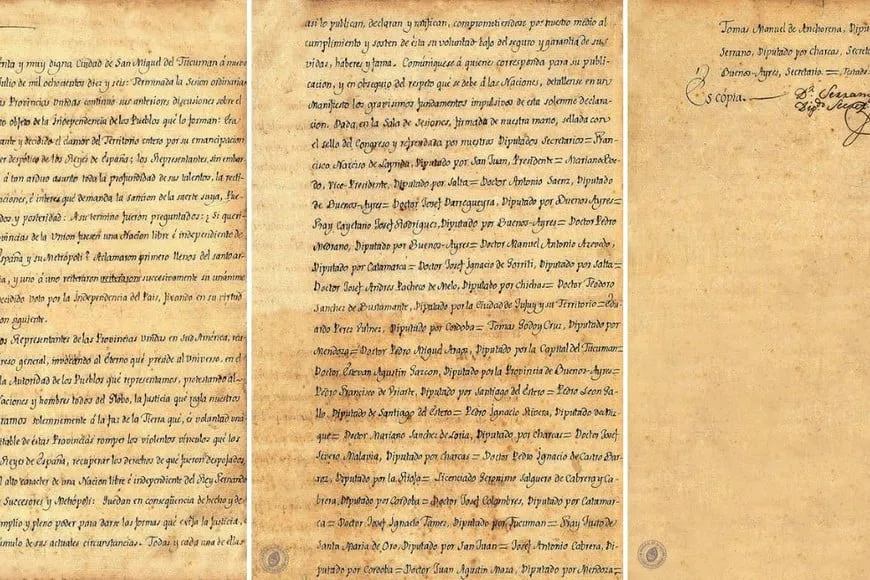 érita y muy digna Ciudad de San Miguel del Tucuman á nueve
Julio de mil ochocientos diez y seis: Terminada la Sesion ordinaria
s Provincias Unidas continuó sus anteriores discusiones sobre el
to objeto de la Independencia de los Pueblos qué lo forman: Era
rante y decidido el clamor del Territorio entero por su emancipacion
er despótico de los Reyes de España; los Representantes, sin embar
á tan arduo asunto toda la profundidad de sus talentos, la recti
nciones, é interes que demanda la Sancion de la suerte suya, Pue
dos y posteridad: A su termino fueron preguntados: ¿Si queri
vincias de la Union fuesen una Nacion libre é independiente de
España y su Metrópoli? Aclamaron primero llenos del santo ar
ia, y uno á uno reiteraron sucesivamente su unánime
decidido voto por la Independencia del País, fixando en su virtud
on siguiente.
os Representantes de las Provincias unidas en Sud América, reu
greso general, invocando al Eterno qué preside al Universo, en el
la Autoridad de los Pueblos qué representamos, protestando al
Naciones y hombres todos del Globo, la Justicia que regla nuestros
ramos solemnemente á la faz de la Tierra qué, es voluntad una
itable de éstas Provincias romper los violentos vinculos qué los
s Reyes de España, recuperar los derechos de qué fueron despojados,
el alto caracter de una Nacion libre é independiente del Rey Fernando
s Succesores y Metrópoli: Quedan en conseqüencia de hecho y de
amplio y pleno poder para darse las formas qué exija la Justicia, é
cúmulo de sus actuales circunstancias. Todas y cada una de ellas
así lo publican, declaran y ratifican, comprometiendose por nuestro medio al
cumplimiento y sosten de ésta su voluntad bajo del seguro y garantía de sus
vidas, haberes y fama. Comuniquese á quienes corresponda para su publi-
cacion, y en obsequio del respeto qué se debe á las Naciones, detallense en un
Manifiesto los gravisimos fundamentos impulsivos de esta solemne declara-
cion. Dada en la Sala de Sesiones, firmada de nuestra mano, sellada con
el sello del Congreso y refrendada por nuestros Diputados Secretarios = Fran-
cisco Narciso de Laprida, Diputado por San Juan, Presidente = Mariano Boe-
do, Vice-Presidente, Diputado por Salta = Doctor Antonio Saenz, Diputado
de Buenos-Ayres = Doctor Josef Darregueyra, Diputado por Buenos-Ayres =
Fray Cayetano Josef Rodriguez, Diputado por Buenos-Ayres = Doctor Pedro
Medrano, Diputado por Buenos-Ayres = Doctor Manuel Antonio Azevedo,
Diputado por Catamarca = Doctor Josef Ignacio de Gorriti, Diputado por Salta =
Doctor Josef Andres Pacheco de Melo, Diputado por Chichas = Doctor Teodoro
Sanchez de Bustamante, Diputado por la Ciudad de Jujuy y su Territorio = Edu-
ardo Perez Pulnes, Diputado por Cordoba = Tomas Godoy Cruz, Diputado por
Mendoza = Doctor Pedro Miguel Araoz, Diputado por la Capital del Tucuman =
Doctor Estevan Agustin Gazcon, Diputado por la Provincia de Buenos-Ayres =
Pedro Francisco de Uriarte, Diputado por Santiago del Estero = Pedro Leon Ga-
llo, Diputado de Santiago del Estero = Pedro Ignacio Rivera, Diputado de Miz-
que = Doctor Mariano Sanchez de Loria, Diputado por Charcas = Doctor Josef
Severo Malavia, Diputado por Charcas = Doctor Pedro Ignacio de Castro Bar-
roz, Diputado por la Rioja = Licenciado Geronimo Salguero de Cabrera y Ca-
brera, Diputado por Cordoba = Doctor Josef Colombres, Diputado por Catamar-
ca = Doctor Josef Ignacio Tames, Diputado por Tucuman = Fray Justo de
Santa Maria de Oro, Diputado por San Juan = Josef Antonio Cabrera, Di-
putado por Cordoba = Doctor Juan Agustin Maza, Diputado por Mendoza =
Tomas Manuel de Anchorena, Dipu
Serrano, Diputado por Charcas, Secret
Buenos-Ayres, Secretario. = Testado:
Es copia.
Dr. Serrano